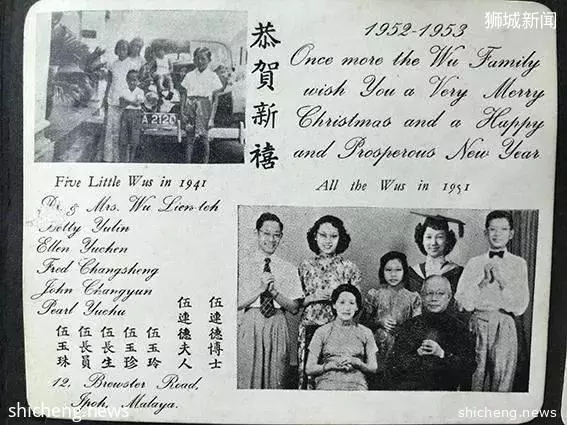 狮城新闻
A 2126
恭賀新禧
1952-1953
Once more the Wu Family
wish You a Very Merry
Christmas and a Happy
and Prosperous New Year
Five Little Wus in 1941
All the Wus in 1951
Dr. & Mrs. Wu Lien-teh
Betty Yulin
Ellen Yuchen
Fred Changsheng
John Changyun
Pearl Yuchu
伍連德博士
伍連德夫人
伍玉玲
伍玉珍
伍長生
伍長員
伍玉珠
12, Brewster Road,
Ipoh, Malaya.
shicheng.news
shicheng.news